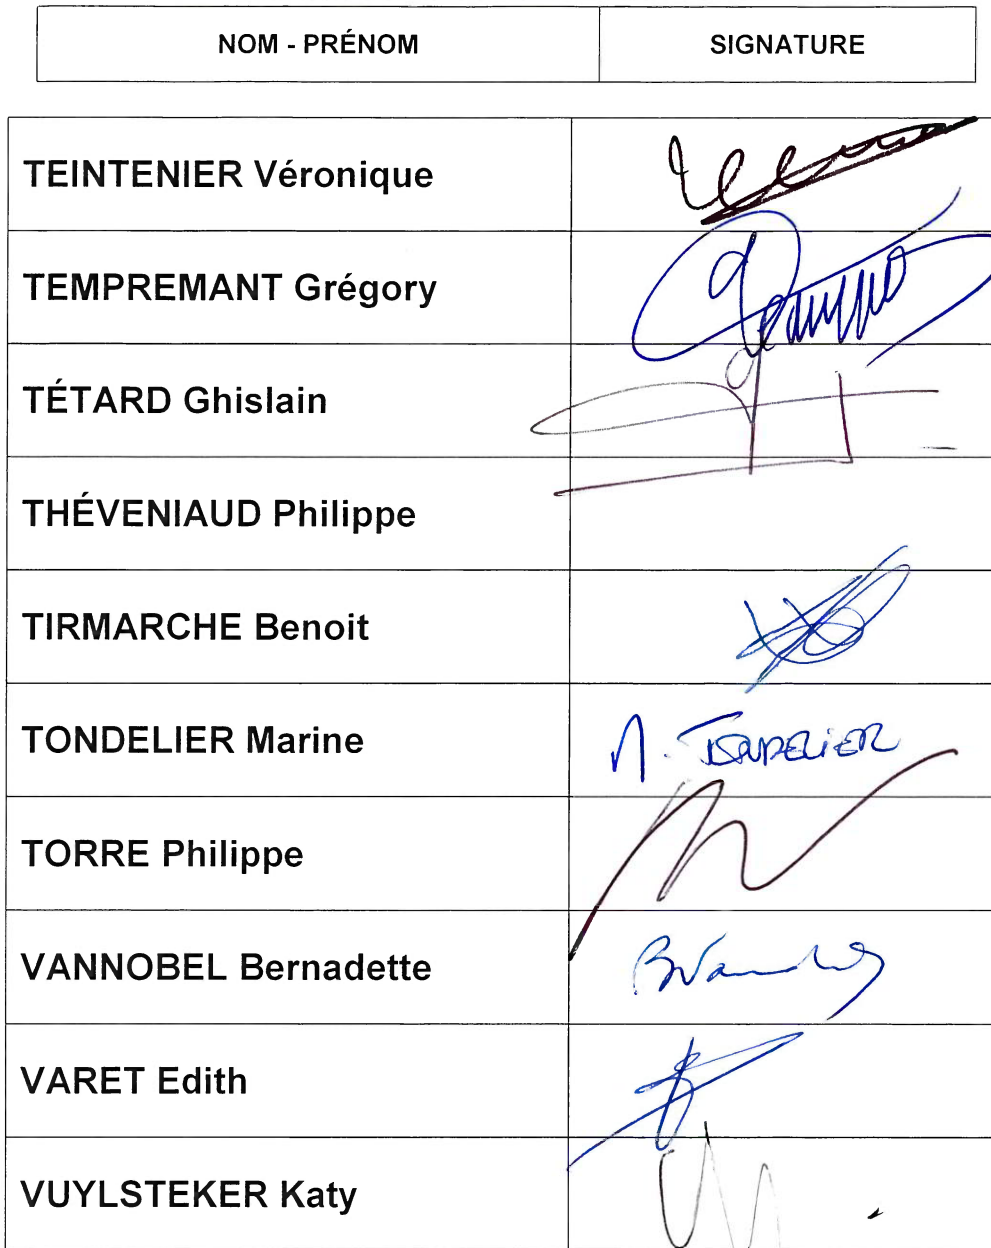 NOM - PRÉNOM SIGNATURE
TEINTENIER Véronique
TEMPREMANT Grégory
TÉTARD Ghislain
THÉVENIAUD Philippe
TIRMARCHE Benoit
TONDELIER Marine M. TONDELIER
TORRE Philippe
VANNOBEL Bernadette
VARET Edith
VUYLSTEKER Katy